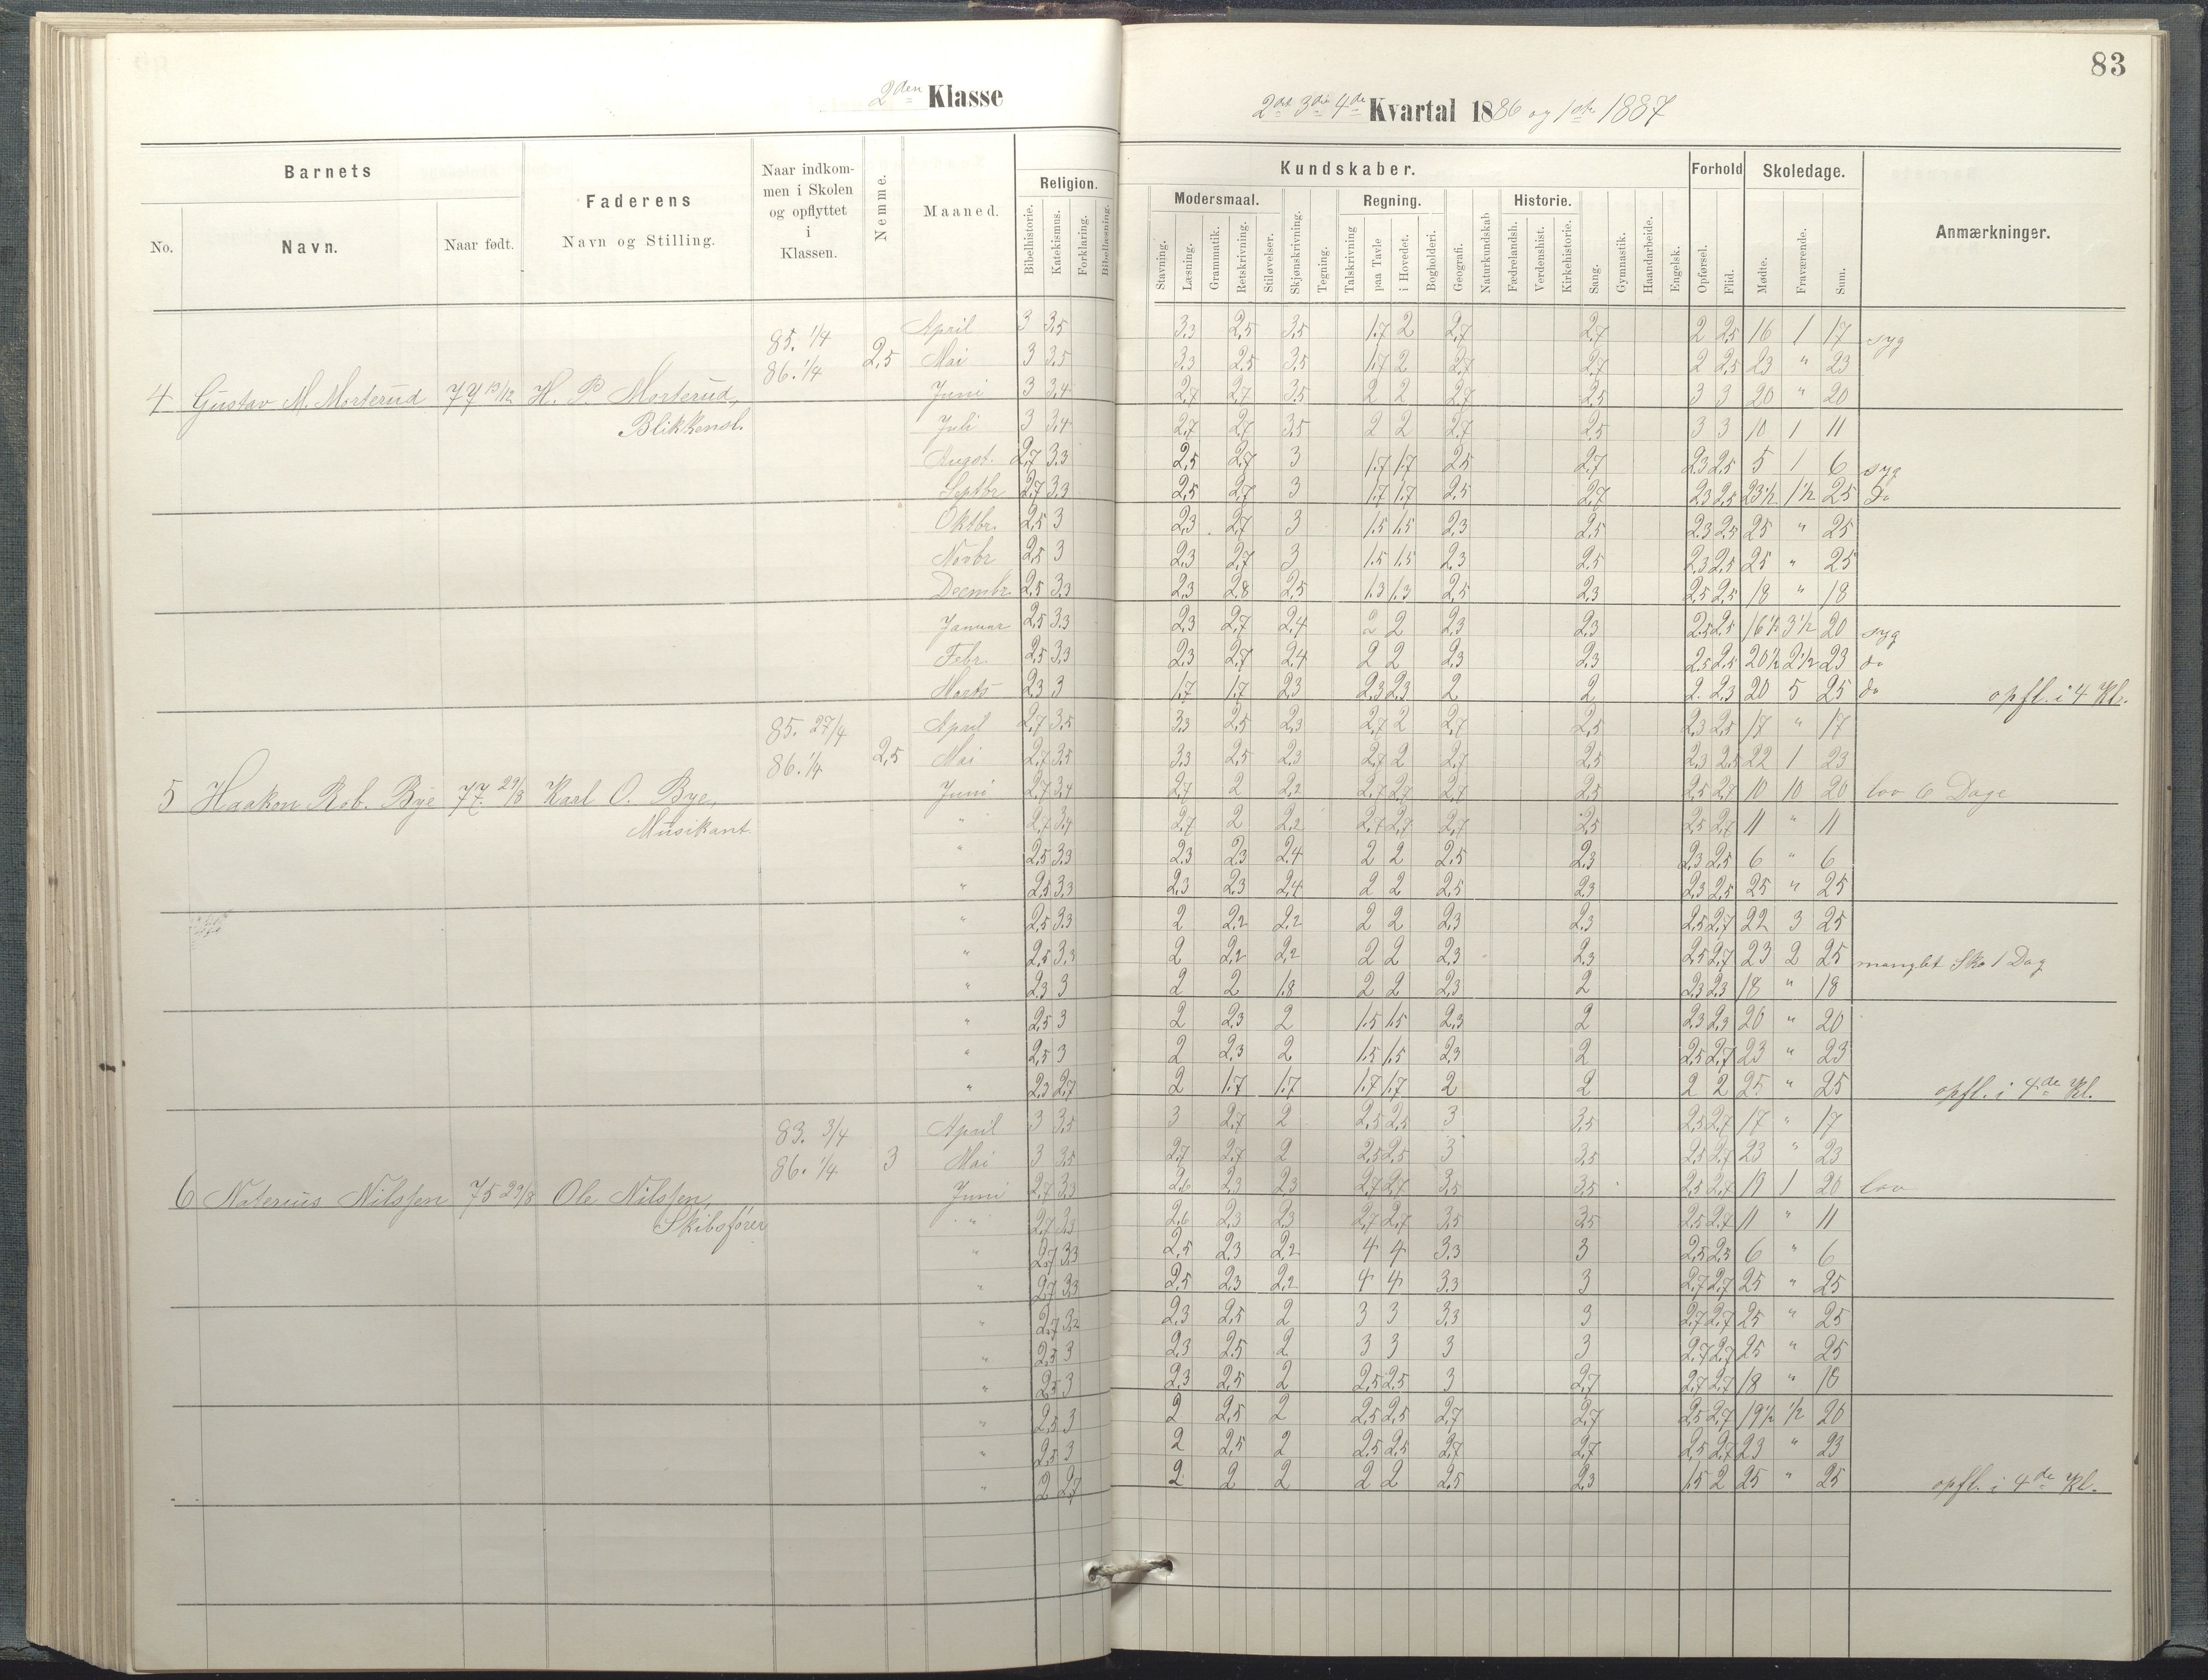 83
2den Klasse
2det 3die 4de Kvartal 1886 og 1ste 1887
Barnets
Faderens
Naar indkommen i Skolen og opflyttet i Klassen.
Nemme.
Maaned.
Religion.
Kundskaber.
Forhold
Skoledage.
Anmærkninger.
Modersmaal.
Regning.
Historie.
No.
Navn.
Naar født.
Navn og Stilling.
Bibelhistorie.
Katekismus.
Forklaring.
Bibellæsning.
Stavning.
Læsning.
Grammatik.
Retskrivning.
Stiløvelser.
Skjønskrivning.
Tegning.
Talskrivning
paa Tavle
i Hovedet.
Bogholderi.
Geografi.
Naturkundskab
Fædrelandsh.
Verdenshist.
Kirkehistorie.
Sang.
Gymnastik.
Haandarbeide.
Engelsk.
Opførsel.
Flid.
Mødte.
Fraværende.
Sum.
85. 1/4
86. 1/4
2,5
4 Gustav M. Morterud H. P. Morterud,
Blikkensl.
April 3 3,5 3,3 2,5 3,5 1,7 2 2,7 2,7 2 2,5 16 1 17 syg
Mai 3 3,5 3,3 2,5 3,5 1,7 2 2,7 2,7 2 2,5 23 " 23
Juni 3 3,4 2,7 2,7 3,5 2 2 2,7 2,5 3 3 20 " 20
Juli 3 3,4 2,7 2,7 3,5 2 2 2,7 2,5 3 3 10 1 11
August. 2,7 3,3 2,5 2,7 3 1,7 1,7 2,5 2,7 2,3 2,5 5 1 6 syg
Septbr 2,7 3,3 2,5 2,7 3 1,7 1,7 2,5 2,7 2,3 2,5 23 1/2 1 1/2 25 Do
Oktbr. 2,5 3 2,3 2,7 3 1,5 1,5 2,3 2,5 2,3 2,5 25 " 25
Novbr 2,5 3 2,3 2,7 3 1,5 1,5 2,3 2,5 2,3 2,5 25 " 25
Decmbr. 2,5 3,3 2,3 2,8 2,5 1,3 1,3 2,5 2,3 2,5 2,5 18 " 18
Januar 2,5 3,3 2,3 2,7 2,4 2 2 2,3 2,3 2,5 2,5 16 1/2 3 1/2 20 syg
Febr. 2,5 3,3 2,3 2,7 2,4 2 2 2,3 2,3 2,5 2,5 20 1/2 2 1/2 23 do
Marts 2,3 3 1,7 1,7 2,3 2,3 2,3 2 2 2. 2,3 20 5 25 do opfl. i 4 Kl.
85. 27/4
86. 1/4
2,5
5 Haakon Rob. Bye 77. 29/8 Karl O. Bye,
Musikant
April 2,7 3,5 3,3 2,5 2,3 2,7 2 2,7 2,5 2,3 2,5 17 " 17
Mai 2,7 3,5 3,3 2,5 2,3 2,7 2 2,7 2,5 2,3 2,5 22 1 23
Juni 2,7 3,4 2,7 2 2,2 2,7 2,7 2,7 2,5 2,5 2,7 10 10 20 lov 6 Dage
" 2,7 3,4 2,7 2 2,2 2,7 2,7 2,7 2,5 2,5 2,7 11 " 11
" 2,5 3,3 2,3 2,3 2,4 2 2 2,5 2,3 2,3 2,5 6 " 6
" 2,5 3,3 2,3 2,3 2,4 2 2 2,5 2,3 2,3 2,5 25 " 25
" 2,5 3,3 2 2,2 2,2 2 2 2,3 2,3 2,5 2,7 22 3 25
" 2,5 3,3 2 2,2 2,2 2 2 2,3 2,3 2,5 2,7 23 2 25 manglet Sko 1 Dag
" 2,3 3 2 2 1,8 2 2 2,3 2 2,3 2,3 18 " 18
" 2,5 3 2 2,3 2 1,5 1,5 2,3 2 2,3 2,3 20 " 20
" 2,5 3 2 2,3 2 1,5 1,5 2,3 2 2,5 2,7 23 " 23
" 2,3 2,7 2 1,7 1,7 1,7 1,7 2 2 2 2 25 " 25 opfl. i 4de Kl.
83. 3/4
86. 1/4
3
6 Naterius Nilssen 75 29/8 Ole Nilssen,
Skibsfører
April 3 3,5 3 2,7 2 2,5 2,5 3 3,5 2,5 2,7 17 " 17
Mai 3 3,5 2,7 2,7 2 2,5 2,5 3 3,5 2,5 2,7 23 " 23
Juni 2,7 3,3 2,6 2,3 2,3 2,7 2,7 3,5 3,5 2,5 2,7 19 1 20 lov
" 2,7 3,3 2,6 2,3 2,3 2,7 2,7 3,5 3,5 2,5 2,7 11 " 11
" 2,7 3,3 2,5 2,3 2,2 4 4 3,3 3 2,5 2,5 6 " 6
" 2,7 3,3 2,5 2,3 2,2 4 4 3,3 3 2,7 2,7 25 " 25
" 2,7 3,2 2,3 2,5 2 3 3 3,3 3 2,7 2,7 25 " 25
" 2,5 3 2,3 2,5 2 3 3 3 3 2,7 2,7 25 " 25
" 2,5 3 2,3 2,5 2 2,5 2,5 3 2,7 2,7 2,7 18 " 18
" 2,5 3 2 2,5 2 2,5 2,5 2,7 2,7 2,5 2,7 19 1/2 1/2 20
" 2,5 3 2 2,5 2 2,5 2,5 2,7 2,7 2,5 2,7 23 " 23
" 2 2,7 2 2 2 2 2 2,5 2,3 1,5 2 25 " 25 opfl. i 4de Kl.